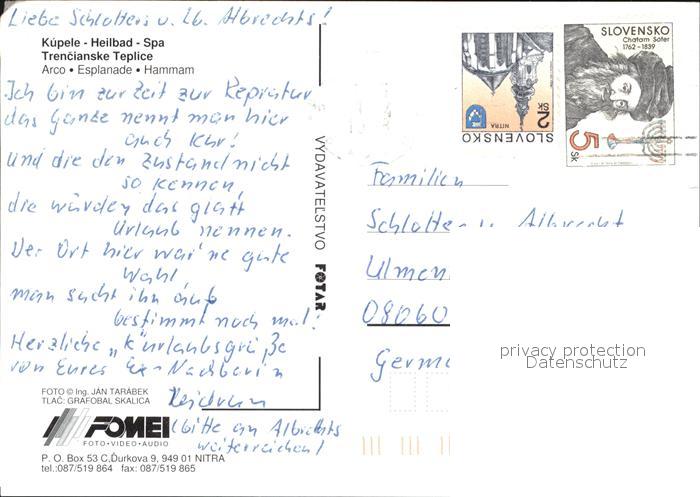 Liebe Schlotters u. lb. Albrechts!
Kúpele - Heilbad - Spa
Trenčianske Teplice
Arco • Esplanade • Hammam
Ich bin zur Zeit zur Repratur
das Ganze nennt man hier
auch Kur!
und die den Zustand nicht
so kennen,
die würden das glatt
Urlaub nennen.
Der Ort hier war 'ne gute
Wahl,
man sucht ihn auf
bestimmt noch mal!
Herzliche „Kurlaubsgrüße
von Eurer Ex-Nachbarin
(bitte an Albrechts
weiterreichen!
FOTO © Ing. JÁN TARÁBEK
TLAČ: GRAFOBAL SKALICA
FOMEI
FOTO•VIDEO•AUDIO
P. O. Box 53 C.Ďurkova 9, 949 01 NITRA
tel.:087/519 864 fax: 087/519 865
VYDAVATEĽSTVO FOTAR
SLOVENSKO
2 SK
NITRA
SLOVENSKO
Chatam Sófer
1762 - 1839
5 SK
Familien
Schlotter u. Albrecht
Ulmen
08060
Germa
privacy protection
Datenschutz